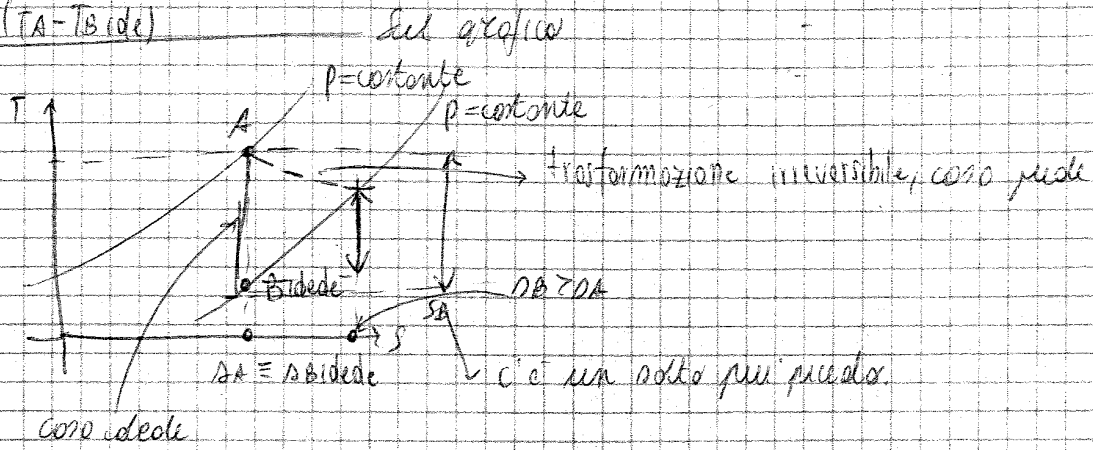 (TA-TBide)
Sul grafico
p=costante
p=costante
T
A
trasformazione irreversibile, caso reale
Bideale
sB>sA
S
sA ≡ sBideale
c'è un salto più piccolo.
caso ideale